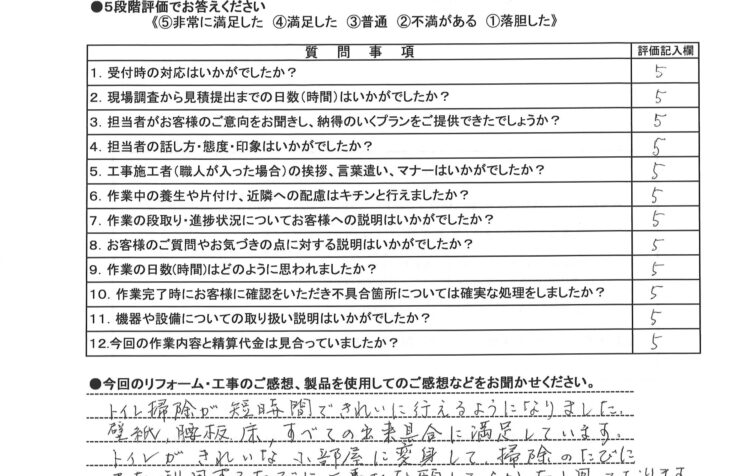 ●5段階評価でお答えください
《⑤非常に満足した ④満足した ③普通 ②不満がある ①落胆した》
質 問 事 項 評価記入欄
1. 受付時の対応はいかがでしたか? 5
2. 現場調査から見積提出までの日数(時間)はいかがでしたか? 5
3. 担当者がお客様のご意向をお聞きし、納得のいくプランをご提供できたでしょうか? 5
4. 担当者の話し方・態度・印象はいかがでしたか? 5
5. 工事施工者(職人が入った場合)の挨拶、言葉遣い、マナーはいかがでしたか? 5
6. 作業中の養生や片付け、近隣への配慮はキチンと行えましたか? 5
7. 作業の段取り・進捗状況についてお客様への説明はいかがでしたか? 5
8. お客様のご質問やお気づきの点に対する説明はいかがでしたか? 5
9. 作業の日数(時間)はどのように思われましたか? 5
10. 作業完了時にお客様に確認をいただき不具合箇所については確実な処理をしましたか? 5
11. 機器や設備についての取り扱い説明はいかがでしたか? 5
12.今回の作業内容と精算代金は見合っていましたか? 5
●今回のリフォーム・工事のご感想、製品を使用してのご感想などをお聞かせください。
トイレ掃除が短時間できれいに行えるようになりました。
壁紙、腰板、床、すべての出来具合に満足しています。
トイレがきれいな小部屋に変身して、掃除のたびに